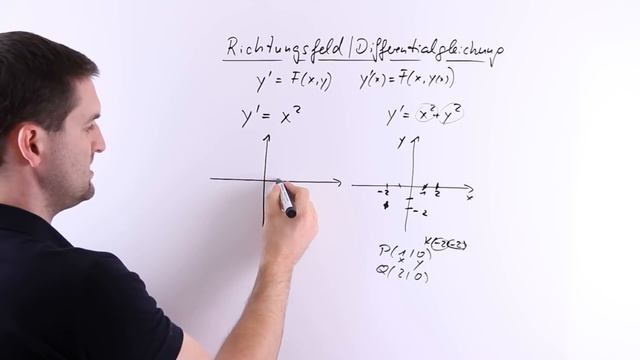 Richtungsfeld / Differentialgleichung
y' = F(x,y) y'(x) = F(x, y(x))
y' = x² y' = x² + y²
y
-2 1 2 x
-2
X(-2|-2)
P(1|0)
x y
Q(2|0)